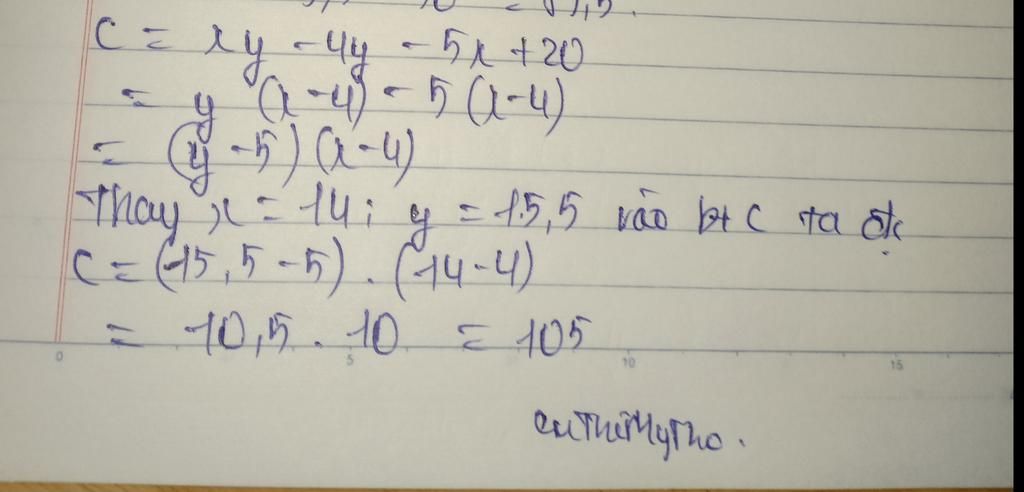 C = xy - 4y - 5x + 20
= y (x-4) - 5 (x-4)
= (y - 5) (x - 4)
Thay x = 14; y = 15,5 vào bt C ta đc
C = (15,5 - 5) . (14 - 4)
= 10,5 . 10 = 105
0 5 10 15